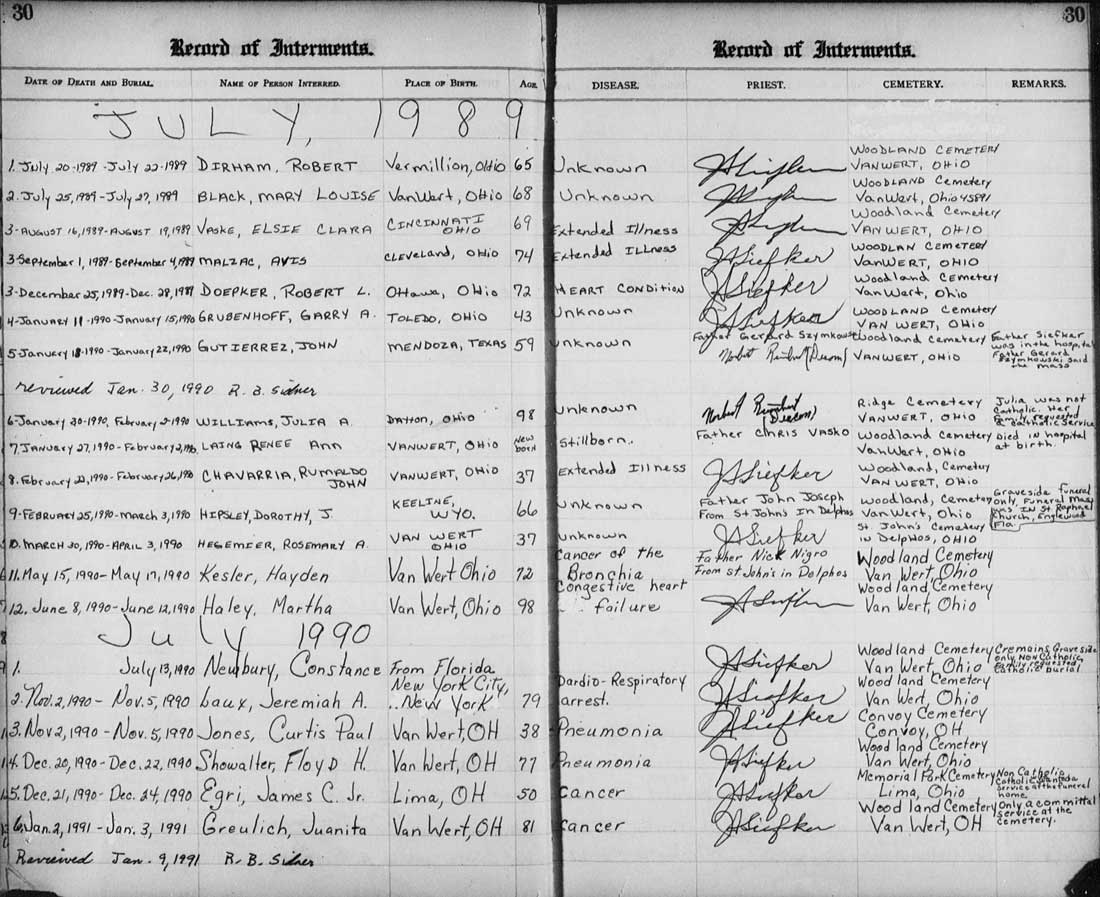 30
30
Record of Interments.
Record of Interments.
DATE OF DEATH AND BURIAL. NAME OF PERSON INTERRED. PLACE OF BIRTH. AGE DISEASE. PRIEST. CEMETERY. REMARKS.
JULY, 1989
1. July 20-1989 - July 22-1989 DIRHAM, ROBERT Vermillion, Ohio 65 Unknown WOODLAND CEMETERY
VANWERT, OHIO
2. July 25, 1989 - July 27, 1989 BLACK, MARY LOUISE VanWert, Ohio 68 Unknown WOODLAND Cemetery
VanWert, Ohio 45891
3-AUGUST 16, 1989-AUGUST 19, 1989 VASKE, ELSIE CLARA CINCINNATI
OHIO 69 Extended Illness Woodland Cemetery
VANWERT, OHIO
3-September 1, 1989-September 4, 1989 MALZAC, AVIS CLEVELAND, OHIO 74 Extended ILLness JASiefker WOODLAN CEMETERY
VANWERT, OHIO
3-December 25, 1989-Dec. 28, 1989 DOEPKER, ROBERT L. OTTawa, OHio 72 HEART CONDITION JASiefker Woodland Cemetery
Van Wert, Ohio
4-January 11-1990-January 15, 1990 GRUBENHOFF, GARRY A. TOLEDO, OHIO 43 Unknown JASiefker WOODLAND Cemetery
VAN WERT, OHIO
5 January 18-1990-January 22, 1990 GUTIERREZ, JOHN MENDOZA, TEXAS 59 Unknown Father Gerard Szymkowski
Norbert (Deacon) Woodland Cemetery
VANWERT, OHIO Father Siefker
was in the hospital
Father Gerard
Szymkowski said
the mass
reviewed Jan. 30, 1990 R. B. Sidner
6-January 30-1990, February 2-1990 WILLIAMS, JULIA A. DAYTON, OHIO 98 Unknown Norbert
(Deacon) Ridge Cemetery
VANWERT, OHIO Julia was not
Catholic. Her
family requested
a Catholic Service
7. January 27, 1990-February 2, 1990 LAING RENEE Ann VANWERT, OHIO New
born Stillborn.. Father CHRIS VASKO Woodland Cemetery
VanWert, OHIO Died in hospital
at birth.
8. February 23, 1990-February 26, 1990 CHAVARRIA, RUMALDO
JOHN VANWERT, OHIO 37 Extended Illness JASiefker Woodland, Cemetery
VAN WERT, OHIO
9-FEBRUARY 25, 1990-MARCH 3, 1990 HIPSLEY, DOROTHY, J. KEELINE,
WYO. 66 Unknown Father John Joseph
From St John's In Delphos Woodland, Cemetery
VanWert, Ohio Graveside funeral
only, Funeral Mass
was IN St Raphael
Church, Englewood
Fla.
10. MARCH 30, 1990-APRIL 3, 1990 HEGEMIER, ROSEMARY A. VAN WERT
OHIO 37 Unknown JASiefker St. John's Cemetery
in Delphos, OHIO
11. May 15, 1990-May 17, 1990 Kesler, Hayden Van Wert Ohio 72 Cancer of the
Bronchia Father Nick Nigro
From St John's in Delphos Woodland Cemetery
Van Wert, Ohio
12. June 8, 1990-June 12, 1990 Haley, Martha Van Wert, Ohio 98 Congestive heart
failure Woodland Cemetery
Van Wert, Ohio
July 1990
1. July 13, 1990 Newbury, Constance From Florida JASiefker Woodland Cemetery
Van Wert, Ohio Cremains, Graveside
only, Non Catholic
family requested
Catholic burial
2. Nov. 2, 1990 - Nov. 5, 1990 Laux, Jeremiah A. New York City,
New York 79 Dardio-Respiratory
arrest. JASiefker Woodland Cemetery
Van Wert, Ohio
3. Nov 2, 1990 - Nov. 5, 1990 Jones, Curtis Paul Van Wert, OH 38 Pneumonia JASiefker Convoy Cemetery
Convoy, OH
4. Dec. 20, 1990 - Dec. 22, 1990 Showalter, Floyd H. Van Wert, OH 77 Pneumonia JASiefker Woodland Cemetery
Van Wert, Ohio
5. Dec. 21, 1990 - Dec. 24, 1990 Egri, James C. Jr. Lima, OH 50 Cancer JASiefker Memorial Park Cemetery
Lima, Ohio Non Catholic
Catholic wanted a
service at the funeral
home.
6. Jan. 2, 1991 - Jan. 3, 1991 Greulich, Juanita Van Wert, OH 81 Cancer JASiefker Woodland Cemetery
Van Wert, OH Only a committal
service at the
cemetery.
Reviewed Jan. 9, 1991 R. B. Sidner